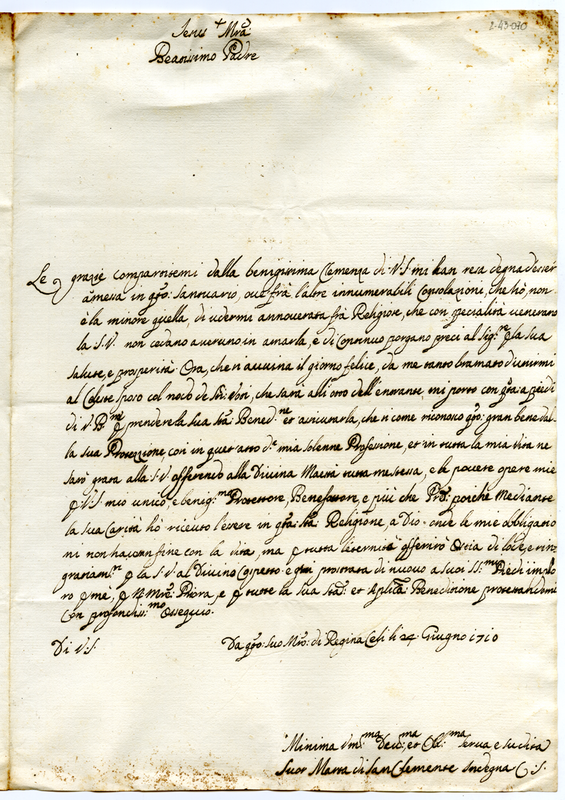 2-43-070
Jesus + Mra
Beatissimo Padre
Le grazie compartitemi dalla benignissima Clemenza di V.S. mi han resa degna d'esser
amessa in qto: santuario, ove frà l'altre innumerabili Consolazioni, che hò, non
è la minore quella, di vedermi annoverata frà Religiose, che con specialità venerano
la S.V. non cedano a veruno in amarla, e di Continuo porgano preci al Sigre p la sua
salute, e prosperità: Ora, che si avvicina il giorno felice, da me tanto bramato d'unirmi
al Celeste sposo col nodo de Sti: Voti, che sarà alli otto dell'entrante, mi porto con qta: a piedi
di V. Bne p prendere la sua Sta: Benedne et assicurarla, che si come riconosco qto: gran bene dal
la sua Protezzione, con in quest'atto di mia solenne Professione, et in tutta la mia vita ne
sarò grata alla S.V. offerendo alla Divina Maestà tutta me stessa, e le povere opere mie
p V.S. mio unico, e benigmo Protettore, Benefattore, e più che Pre: poiche Mediante
la sua Carità hò ricevuto l'essere in qta: Sta: Religione, a Dio: onde le mie obligazio
ni non havran fine con la vita, ma p tutta l'eternità offerirò Ostia di lode, e rin
graziamto p la S.V. al Divino Cospetto: e qui prostrata di nuovo a suoi SS.mi Piedi implo
ro p me, p M Mre: Priora, e p tutte la sua Sta: et Aplica Benedizione protestandomi
con profondis:mo Ossequio.
Di V.S. Da qto: suo Mro: di Regina Celi li 24 Giugno 1710
Minima Uml:ma Devot:ma, et Obl:ma serva, e sudita
Suor Maria di San Clemente Indegna C. S.